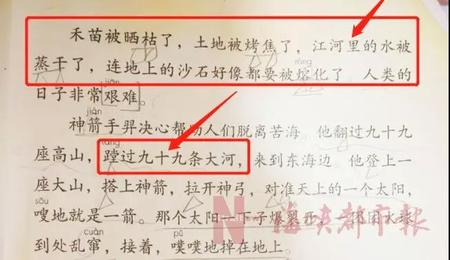 禾苗被晒枯了，土地被烤焦了，江河里的水被
蒸干了，连地上的沙石好像都要被熔化了，人类的
jiān
日子非常艰难。
jiàn
神箭手羿决心帮助人们脱离苦海。他翻过九十九
tāng
座高山，蹚过九十九条大河，来到东海边。他登上一
座大山，搭上神箭，拉开神弓，对准天上的一个太阳，
sōu
嗖地就是一箭。那个太阳一下子爆裂开，一团团火球
cuàn pū
到处乱窜，接着，噗噗地掉在地上。
N 海峡都市报